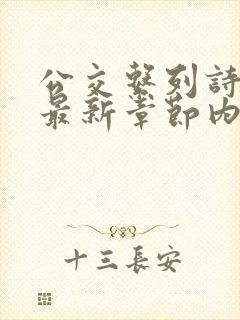 公交繫列詩
最新章節内
十三長安